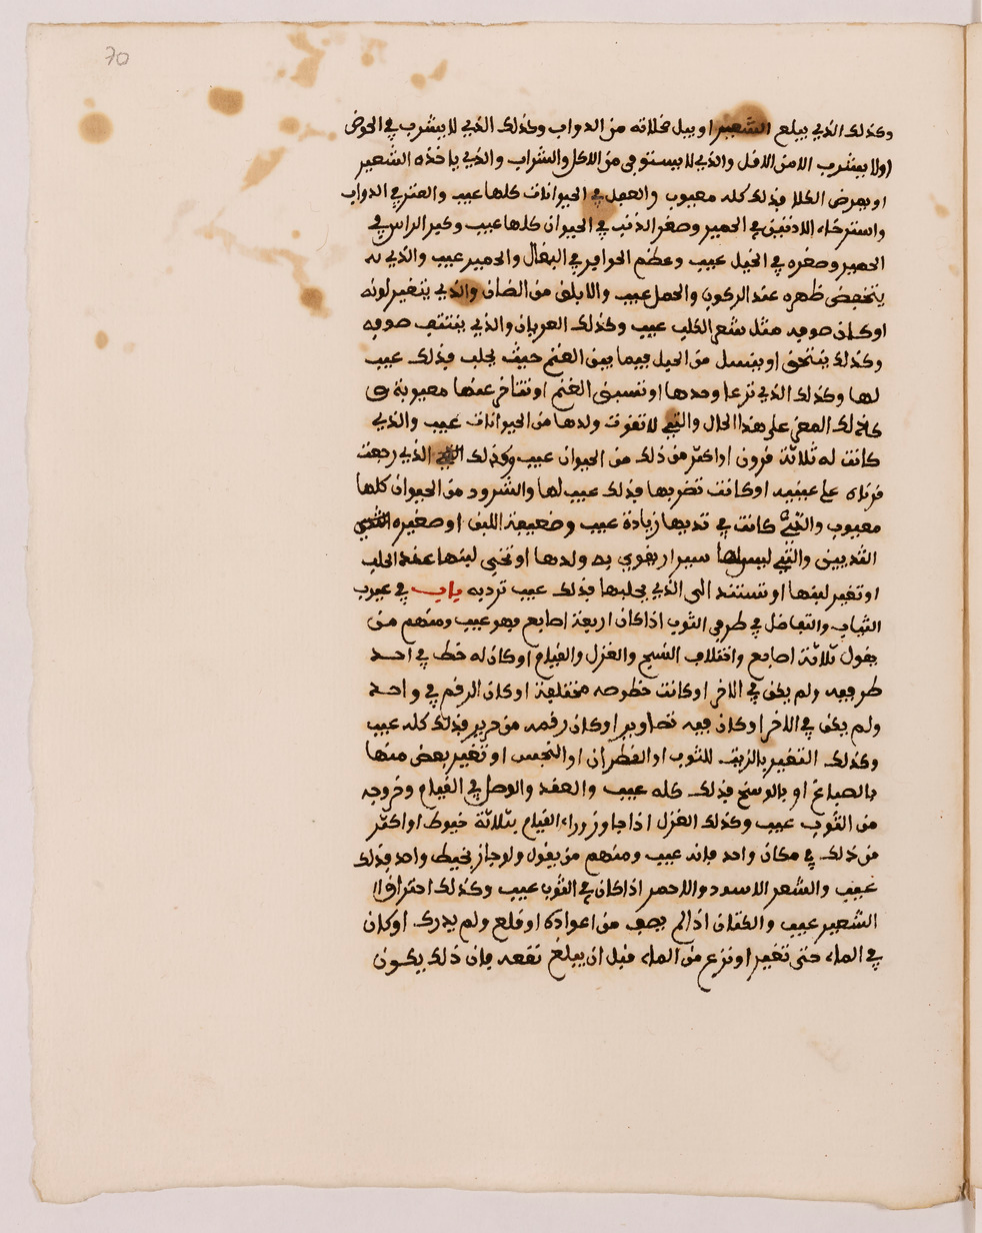 70
وكذلك الذي يبلع الشعير او يبل مخلاته من الدواب وكذلك الذي لا يشرب في الحوض
اولا يشرب الا من الاقل والذي لا يستوفى من الاكل والشراب والذي ياخذه الشعير
او بعرض الكلا فذلك كله معيوب والعفل في الحيوانات كلها عيب والعثر في الدواب
واسترخاء الاذنين في الحمير وصغر الذنب في الحيوان كلها عيب وكبر الراس في
الحمير وصغره في الخيل عيب وعظم الحوافر في البغال والحمير عيب والذي له
ينخفض ظهره عند الركوب والحمل عيب والابلق من الضان والذي يتغير لونه
او كان صوفه مثل شعر الكلب عيب وكذلك العريان والذي ينتتف صوفه
وكذلك ينتحق او ينسل من الحيل فيما بين الغنم حيث يجلب فذلك عيب
لها وكذلك الذي ترعا وحدها او تسبق الغنم او تتاخر عنها معيوبة و
كذلك المعز على هذا الحال والتي لا تفوت ولدها من الحيوانات عيب والذي
كانت له ثلاثة قرون او اكثر من ذلك من الحيوان عيب وكذلك الذي رجعت
قرناه على عينيه او كانت تضر بها فذلك عيب لها والشرود من الحيوان كلها
معيوب والتي كانت في ثديها زيادة عيب وضعيفة اللبن او صغيره
الثديين والتي ليس لها يقوي به ولدها او تخبى لبنها عند الحلب
او تغير لبنها او تستند الى الذي يحلبها فذلك عيب ترد به باب في عيوب
الثياب والتفاضل في طرفي الثوب اذا كان اربعة اصابع فهو عيب ومنهم من
يقول ثلاثة اصابع واختلاف النسج والغزل والقيام او كان له خط في احد
طرفيه ولم يكن في الاخر او كانت خطوطه مختلفة او كان الرقم في واحد
ولم يكن في الاخر او كان فيه تصاوير او كان رقمه من حرير فذلك كله عيب
وكذلك التغير بالزيت للثوب او القطران او النجس او تغير بعض منها
بالصباغ او بالوسخ فذلك كله عيب والعقد والوصل في القيام وخروجه
من الثوب عيب وكذلك الغزل اذا جاوز وراء القيام بثلاثة خيوط او اكثر
من ذلك في مكان واحد فانه عيب ومنهم من يقول ولو جاز بخيط واحد فذلك
عيب والشعر الاسود والاحمر اذا كان في الثوب عيب وكذلك احتراق
الشعير عيب والكتان اذا لم يصف من اعواده او قلع ولم يدرك او كان
في الماء حتى تغير او نزع من الماء قبل ان يبلغ نقعه فان ذلك يكون